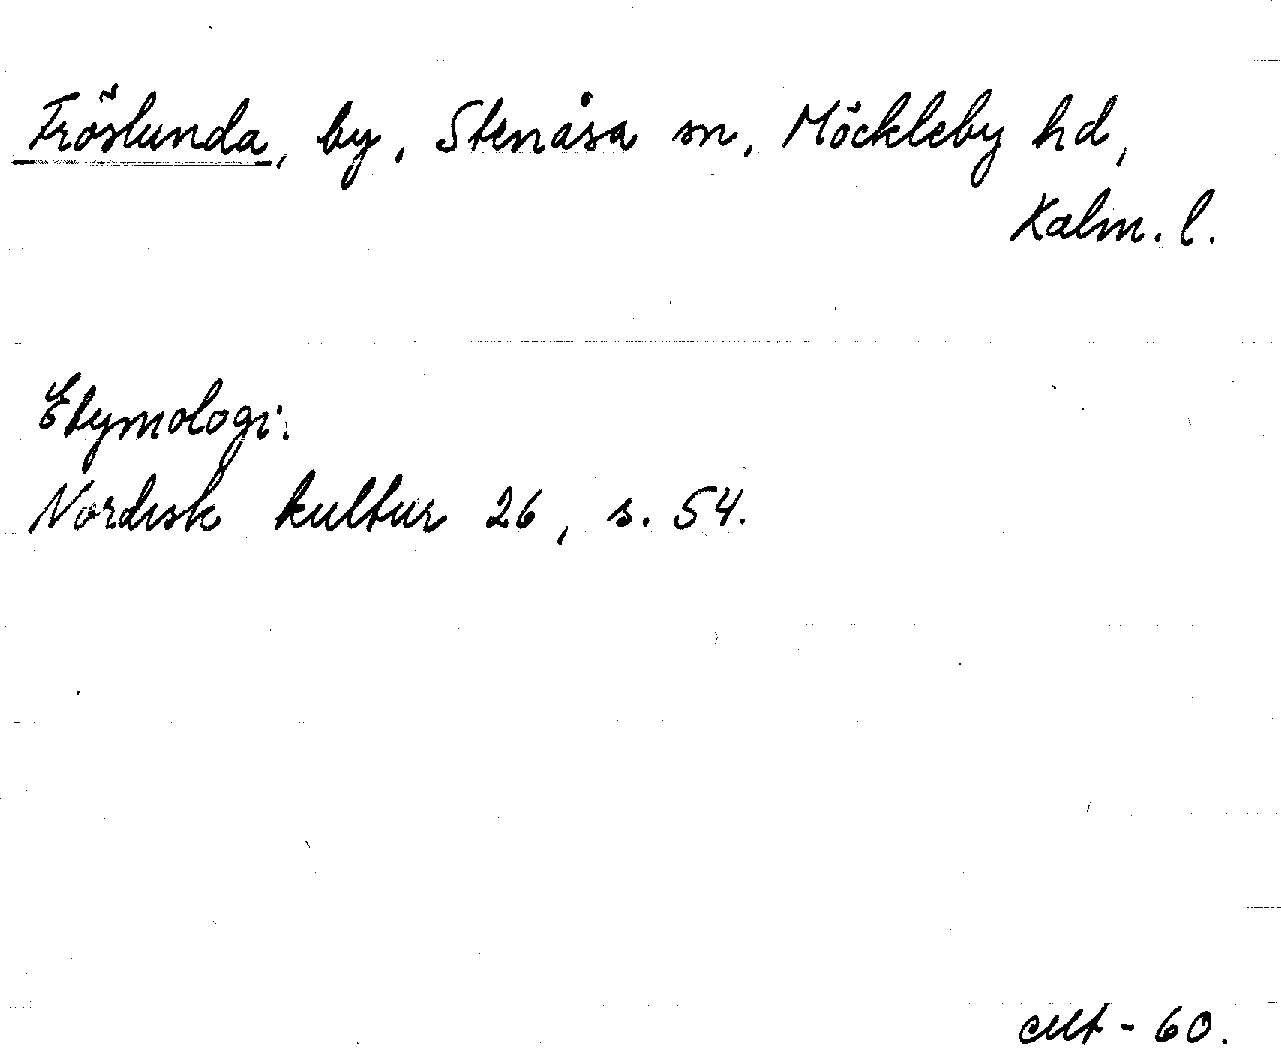 Fröslunda, by, Stenåsa sn, Möckleby hd,
Kalm. l.
Etymologi:
Nordisk kultur 26, s. 54.
- 60.